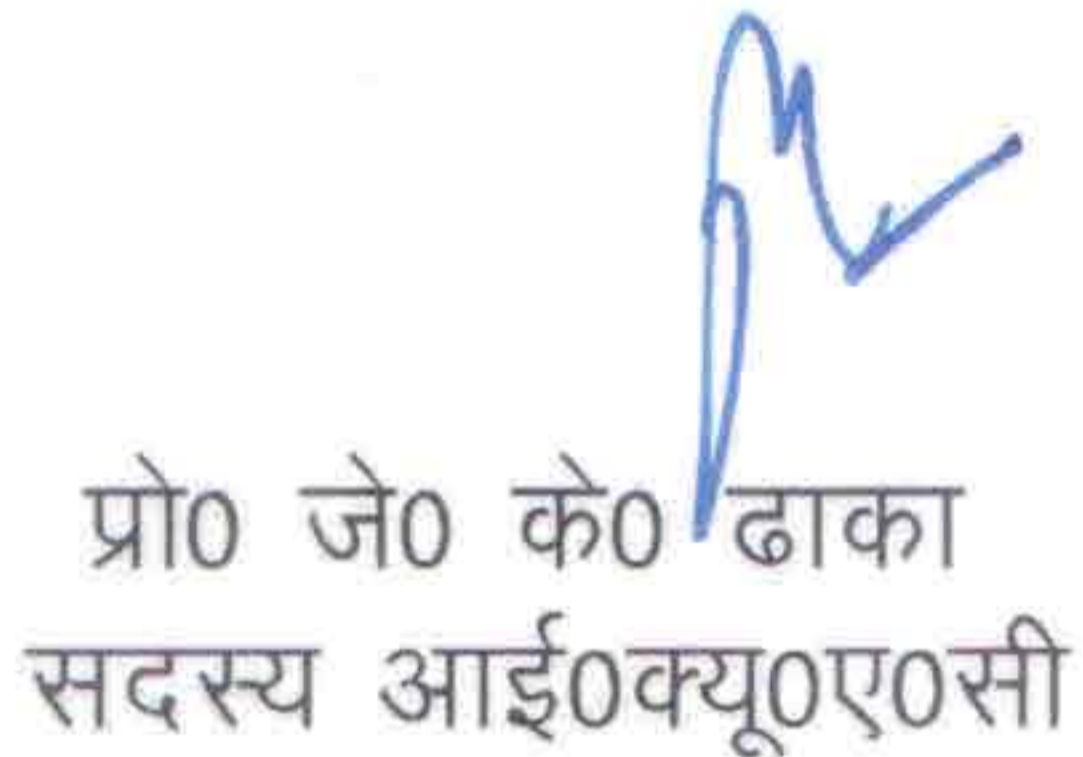 प्रो0 जे0 के0 ढाका
सदस्य आई0क्यू0ए0सी